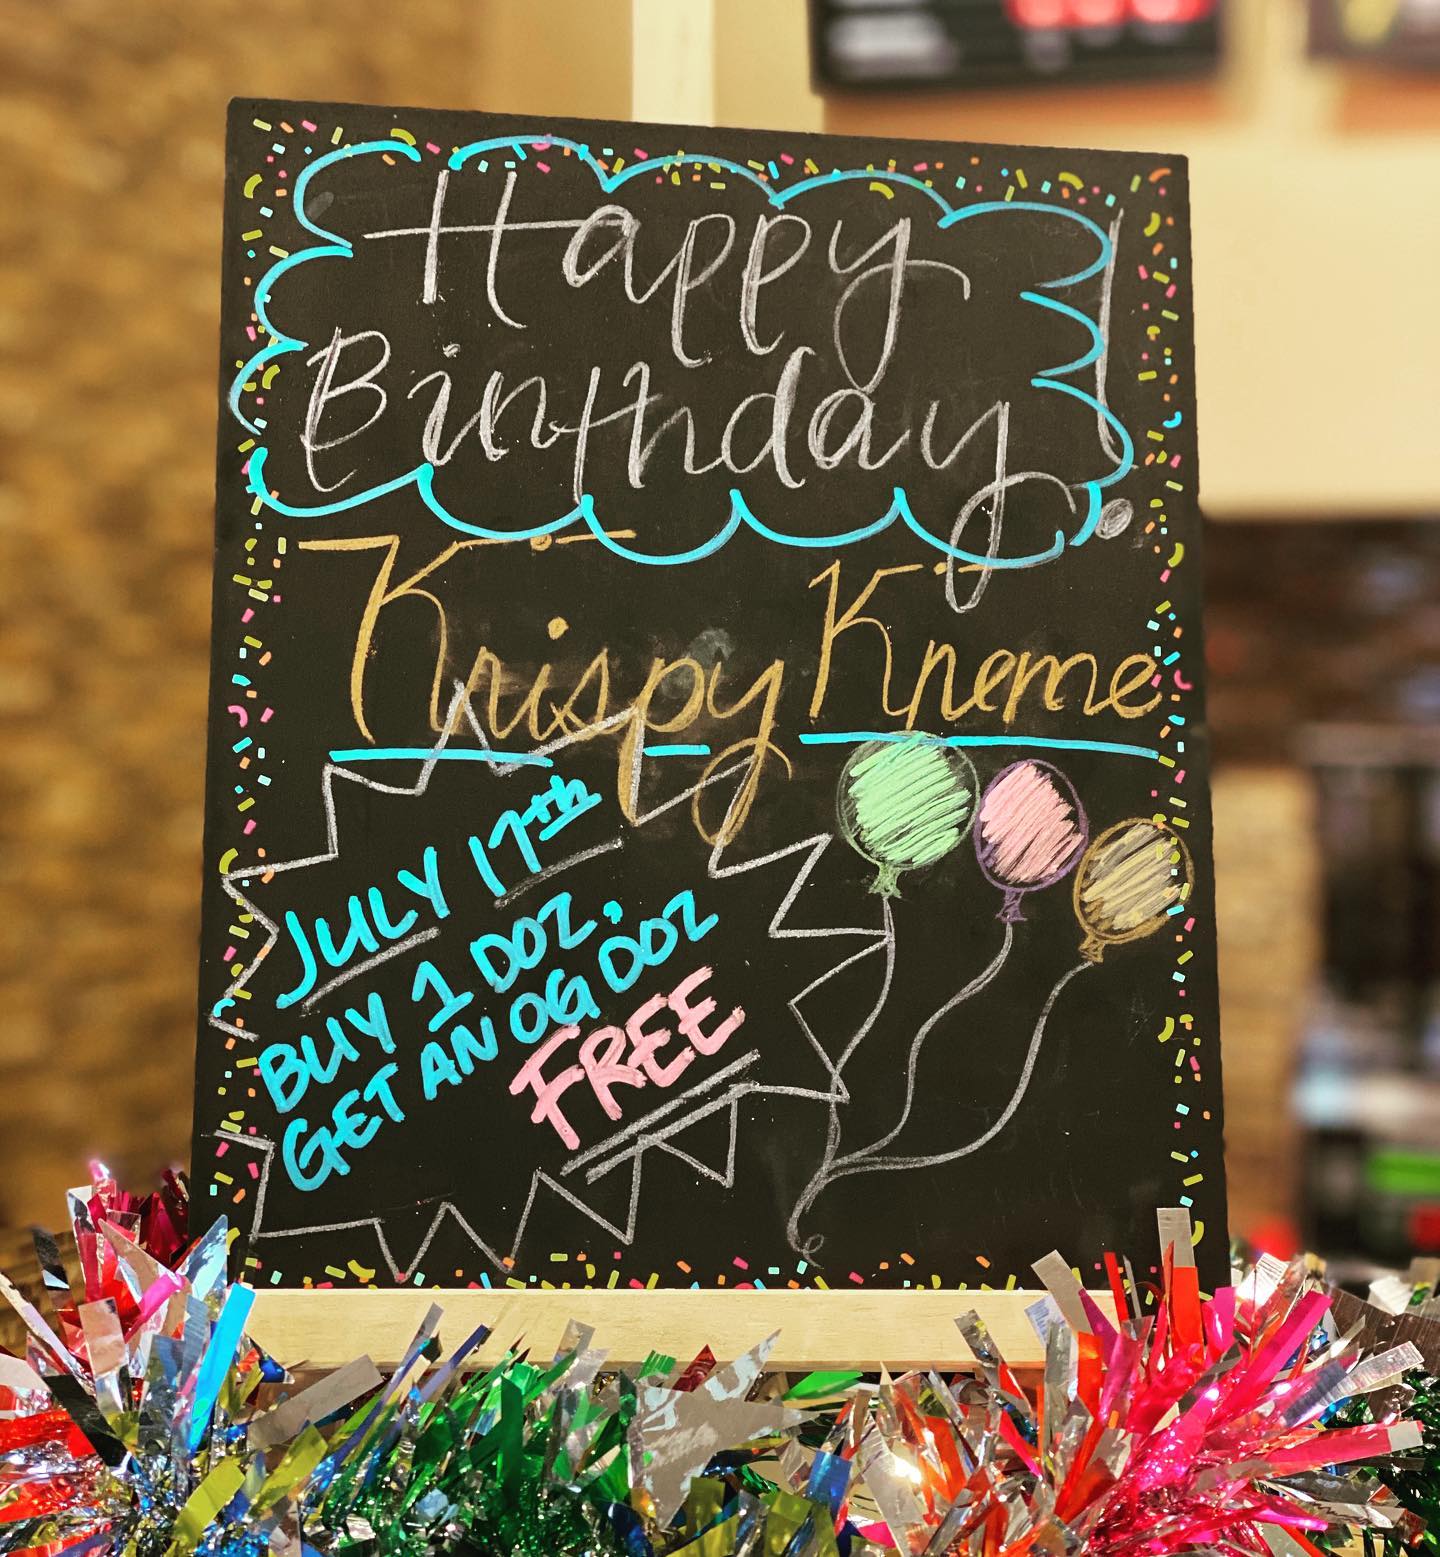 Happy
Birthday!
Krispy Kreme
JULY 17th
BUY 1 DOZ,
GET AN OG DOZ
FREE